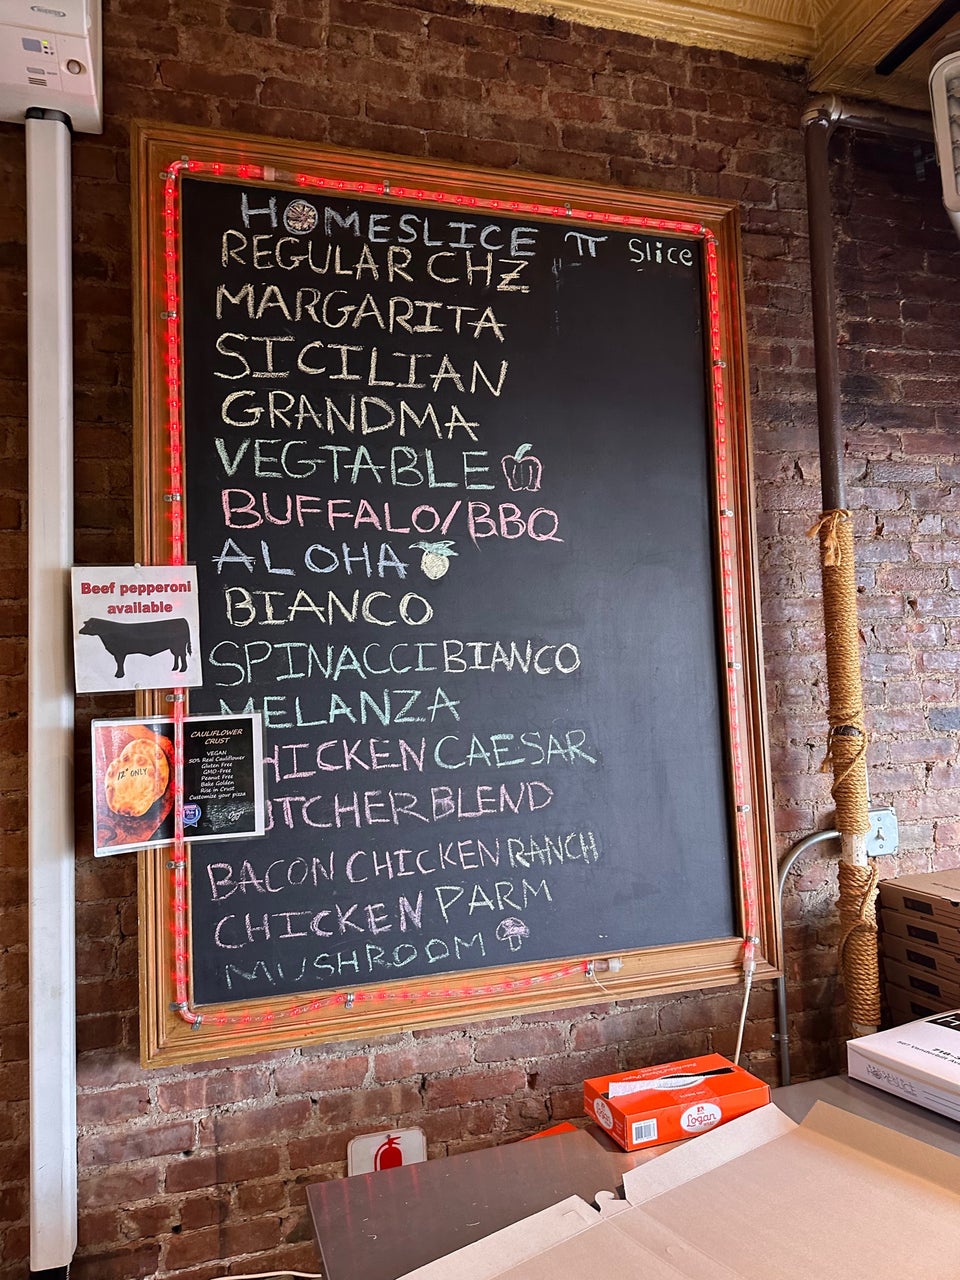 HOMESLICE π Slice
REGULAR CHZ
MARGARITA
SICILIAN
GRANDMA
VEGTABLE
BUFFALO/BBQ
ALOHA
BIANCO
SPINACCI BIANCO
MELANZA
HICKEN CAESAR
UTCHER BLEND
BACON CHICKEN RANCH
CHICKEN PARM
MUSHROOM
Beef pepperoni
available
CAULIFLOWER
CRUST
12" ONLY
VEGAN
50% Real Cauliflower
Gluten Free
GMO-Free
Peanut Free
Bake Golden
Rise in Crust
Customize your pizza
Logan